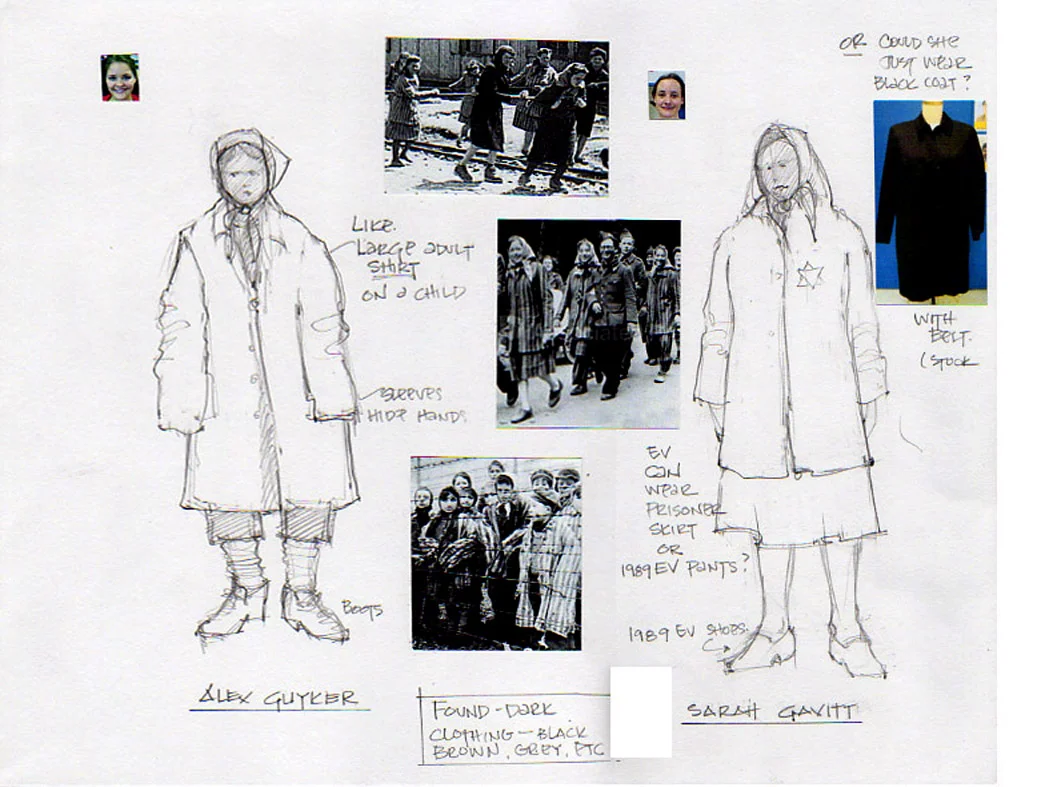 OR COULD SHE
JUST WEAR
BLACK COAT?
LIKE
LARGE ADULT
SHIRT
ON A CHILD
WITH
BELT.
(STOCK
SLEEVES
HIDE HANDS
EV
CAN
WEAR
PRISONER
SKIRT
OR
1989 EV PANTS?
BOOTS
1989 EV SHOES
ALEX GUYKER
FOUND - DARK
CLOTHING - BLACK
BROWN, GREY, ETC
SARAH GAVITT